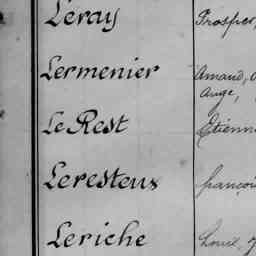 Leray Prosper,
Lermenier Amand,
Auge,
Le Rest Etienn
Leresteux françoi
Leriche Louis,